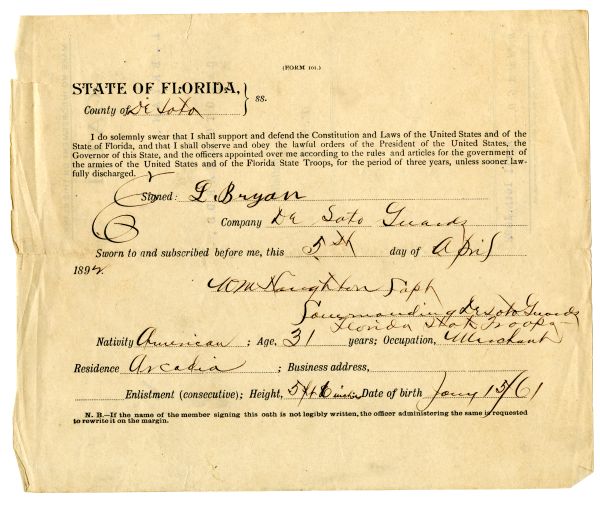 (FORM 101.)
STATE OF FLORIDA, } ss.
County of De Soto
I do solemnly swear that I shall support and defend the Constitution and Laws of the United States and of the
State of Florida, and that I shall observe and obey the lawful orders of the President of the United States, the
Governor of this State, and the officers appointed over me according to the rules and articles for the government of
the armies of the United States and of the Florida State Troops, for the period of three years, unless sooner law-
fully discharged.
Signed: L. Bryan
Company De Soto Guards
Sworn to and subscribed before me, this 5th day of April
1892
Wm Haughton Capt
Commanding De Soto Guards
Florida State Troops
Nativity American ; Age, 31 years; Occupation, Merchant
Residence Arcadia ; Business address,
Enlistment (consecutive); Height, 5 ft 6 inches Date of birth Jany 15/61
N. B.—If the name of the member signing this oath is not legibly written, the officer administering the same is requested
to rewrite it on the margin.